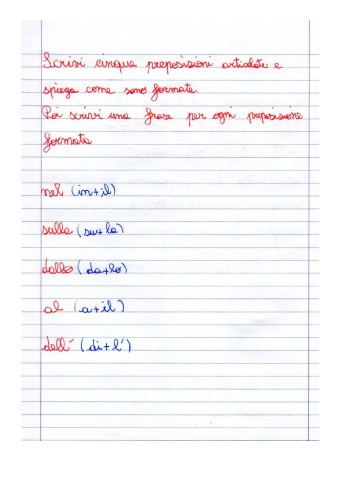 Scrivi cinque preposizioni articolate e
spiega come sono formate.
Poi scrivi una frase per ogni preposizione
formata
nel (in+il)
sulla (su+la)
dallo (da+lo)
al (a+il)
dell' (di+l')